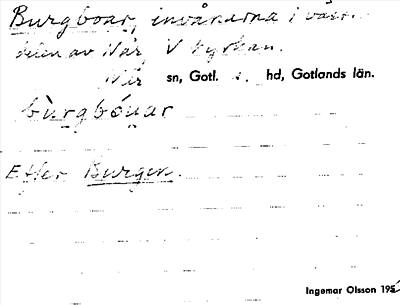 Burgboar, invånarna i västra
delen av När, V kyrkan.
När sn, Gotl. s. hd, Gotlands län.
bùrgbóuar
Efter Burgen.
Ingemar Olsson 195